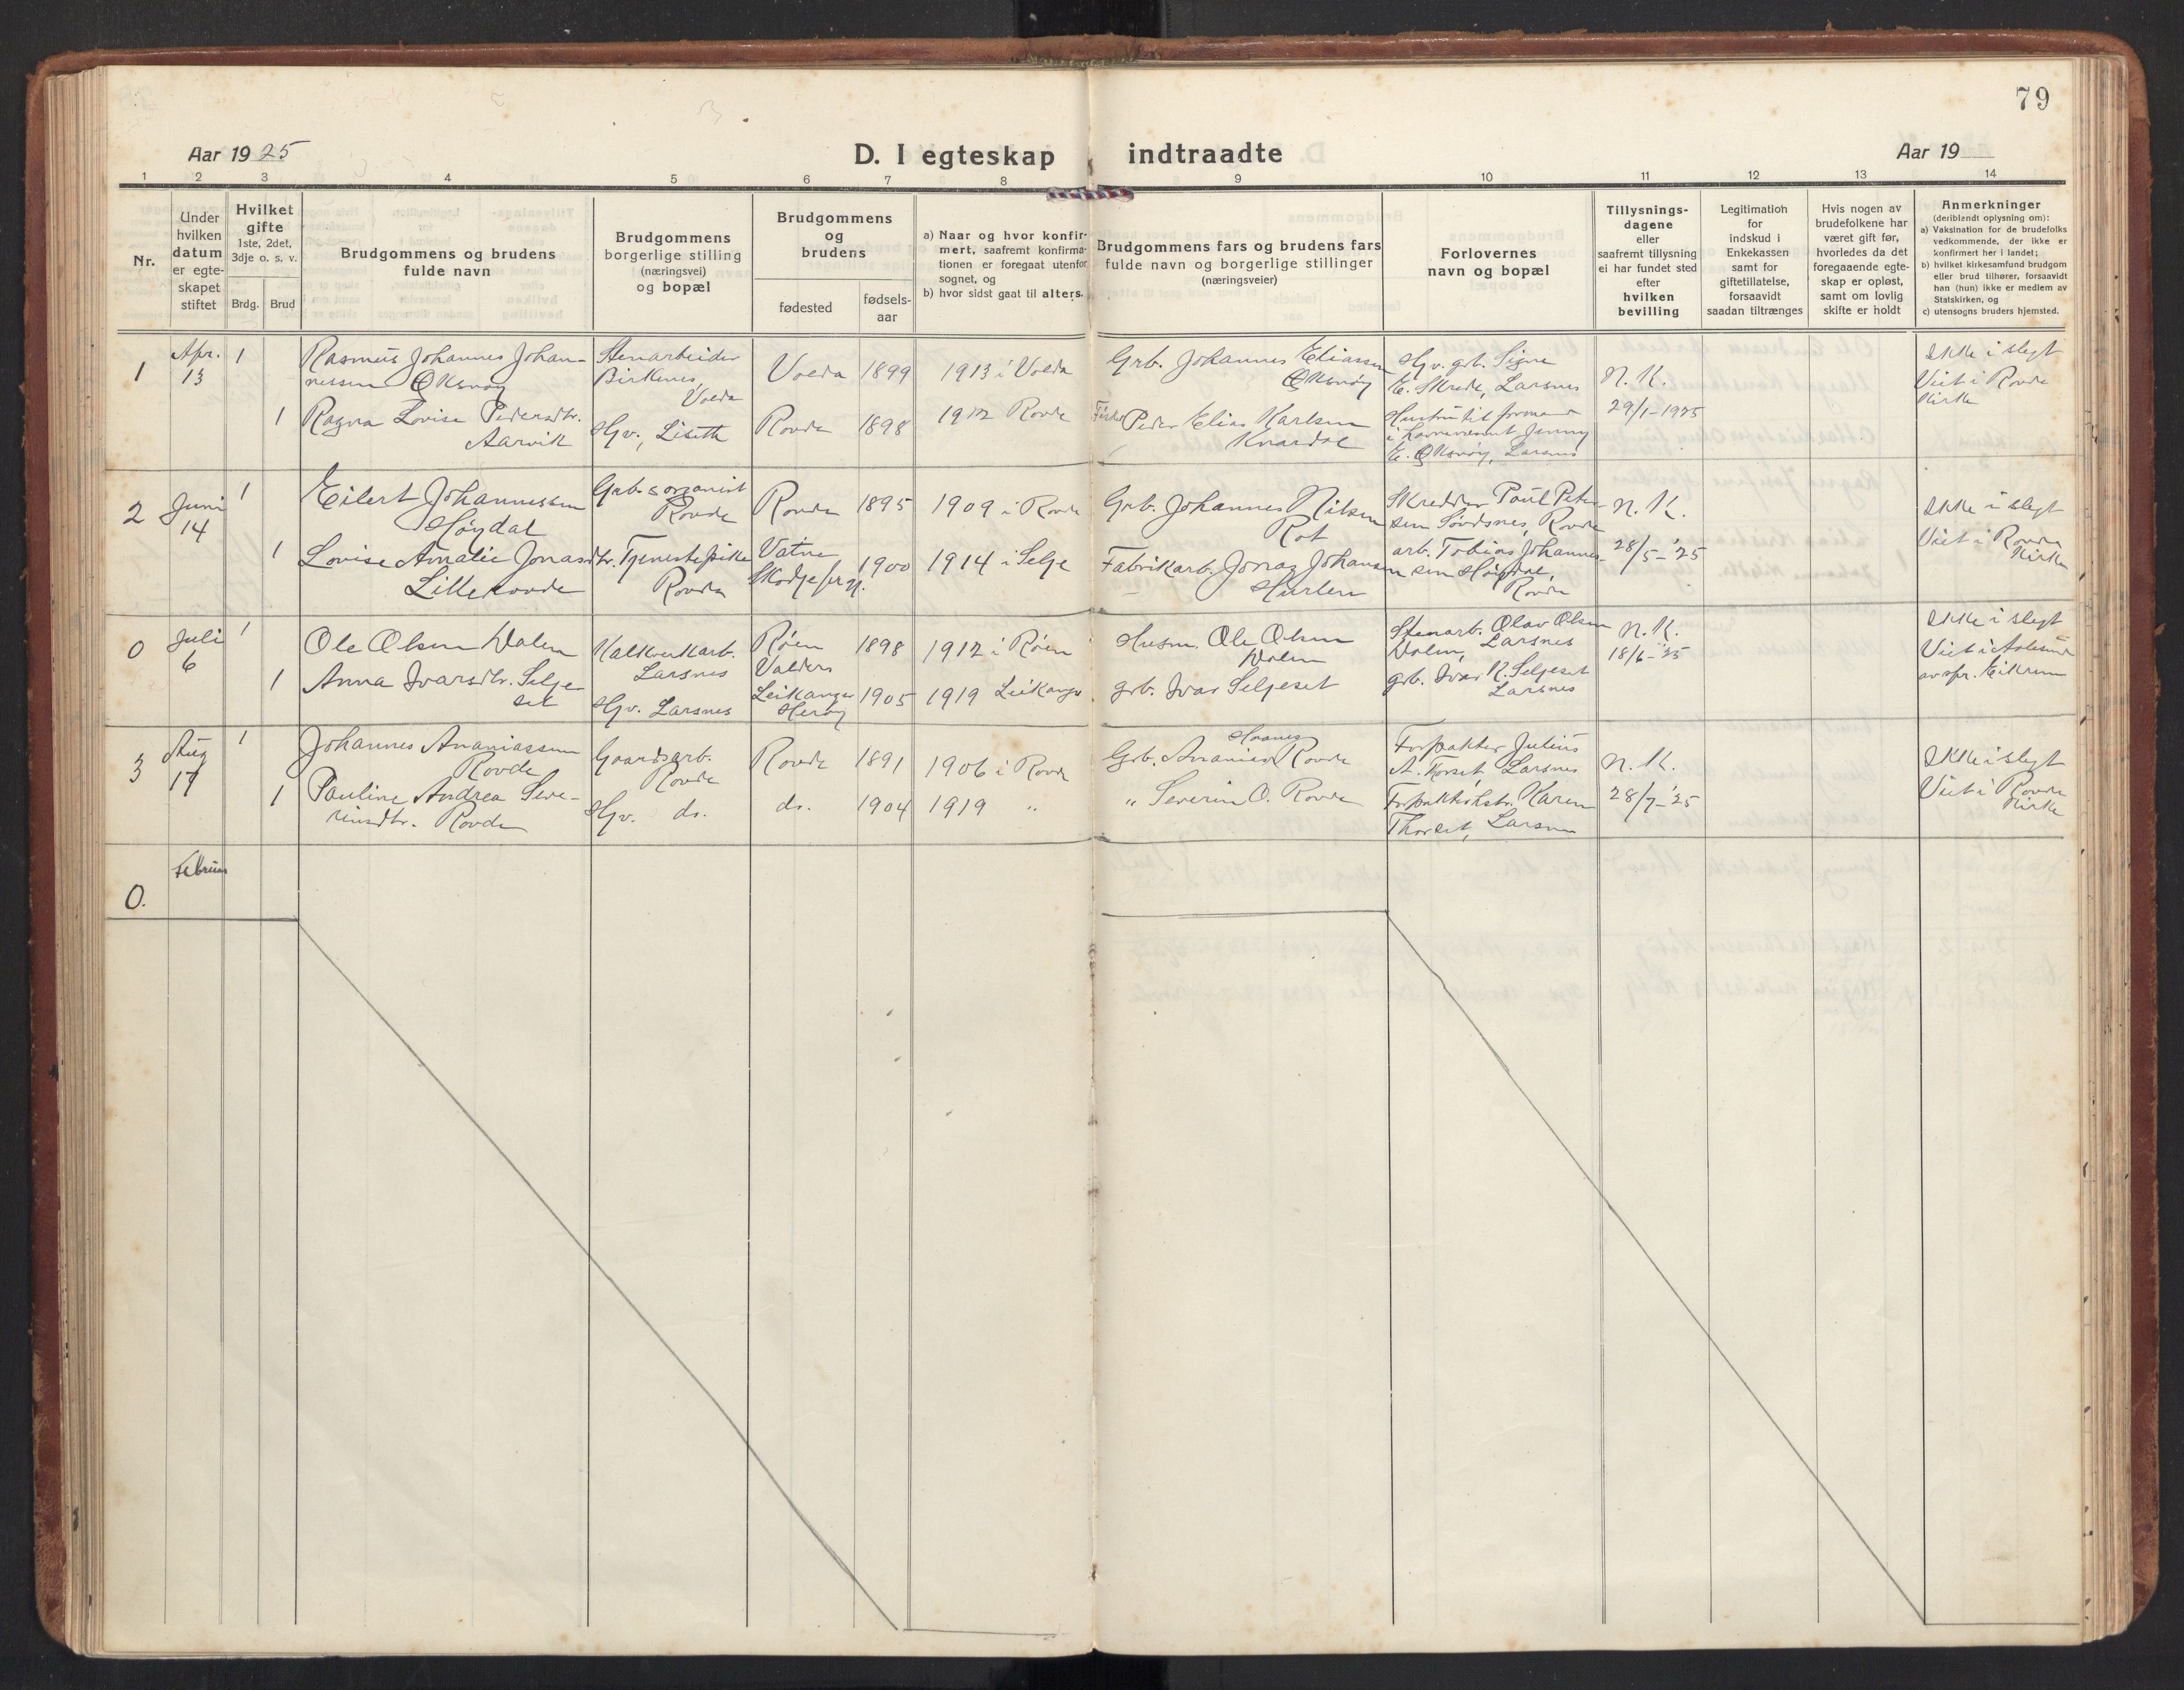 79
Aar 1925
D. I egteskap indtraadte
Aar 19
1 2 3 4 5 6 7 8 9 10 11 12 13 14
Nr.
Under
hvilken
datum
er egte-
skapet
stiftet
Hvilket
gifte
1ste, 2det,
3dje o. s. v.
Brdg. Brud
Brudgommens og brudens
fulde navn
Brudgommens
borgerlige stilling
(næringsvei)
og bopæl
Brudgommens
og
brudens
fødested
fødsels-
aar
a) Naar og hvor konfir-
mert, saafremt konfirma-
tionen er foregaat utenfor
sognet, og
b) hvor sidst gaat til alters.
Brudgommens fars og brudens fars
fulde navn og borgerlige stillinger
(næringsveier)
Forlovernes
navn og bopæl
Tillysnings-
dagene
eller
saafremt tillysning
ei har fundet sted
efter
hvilken
bevilling
Legitimation
for
indskud i
Enkekassen
samt for
giftetillatelse,
forsaavidt
saadan tiltrænges
Hvis nogen av
brudefolkene har
været gift før,
hvorledes da det
foregaaende egte-
skap er opløst,
samt om lovlig
skifte er holdt
Anmerkninger
(deriblandt oplysning om):
a) Vaksination for de brudefolks
vedkommende, der ikke er
konfirmert her i landet;
b) hvilket kirkesamfund brudgom
eller brud tilhører, forsaavidt
han (hun) ikke er medlem av
Statskirken, og
c) utensogns bruders hjemsted.
1
Apr.
13
1
Rasmus Johannes Johan-
nessen Øksnøy
Stenarbeider
Birkenes
Volda
Volda
1899
1913 i Volda
Grb. Johannes Eliassen
Øksnøy
Hv. gt. Signe
E. Skrede, Larsnes
N. K.
29/1-1925
Ikke i slegt
Viet i Rovde
Kirke
1
Ragna Lovise Pedersdtr.
Aarvik
Hv., Liseth
Rovde
1898
1912 Rovde
Fisker Peder Elias Karlsen
Knardal
Hustru til formand
Jenny
E. Øksnøy, Larsnes
2
Juni
14
1
Eilert Johannessen
Høydal
Grb. & organist
Rovde
Rovde
1895
1909 i Rovde
Grb. Johannes Nilsen
Rot
Skredder Paul Peter-
sen Søvdsnes, Rovde
N. K.
28/5-'25
Ikke i slegt
Viet i Rovde
Kirke
1
Lovise Amalie Jonasdtr.
Lillerovde
Tjenestepike
Rovde
Vatne
Skodje prgj.
1900
1914 i Selje
Fabrikarb. Jonas Johansen
Hurlen
arb. Tobias Johannes-
sen Høydal,
Rovde
0
Juli
6
1
Ole Olsen Dalen
Kalkverkarb.
Larsnes
Røien
Valdres
1898
1912 i Røien
Husm. Ole Olsen
Dalen
Stenarb. Olav Olsen
Dalen, Larsnes
N. K.
18/6-'25
Ikke i slegt
Viet i Aalesund
av spr. Eikrem
1
Anna Ivarsdtr. Selje-
set
Hv. Larsnes
Leikanger
Herøy
1905
1919 Leikanger
grb. Ivar Seljeset
grb. Ivar R. Seljeset
Larsnes
3
Aug
17
1
Johannes Ananiassen
Rovde
Gaardsarb.
Rovde
Rovde
1891
1906 i Rovde
Grb. Ananias Rovde
Forpakter Julius
A. Thorset, Larsnes
N. K.
28/7-'25
Ikke i slegt
Viet i Rovde
Kirke
1
Pauline Andrea Seve-
rinsdtr. Rovde
Hv. do.
do.
1904
1919 "
" Severin O. Rovde
Karen
Thorset, Larsnes
0.
Februar